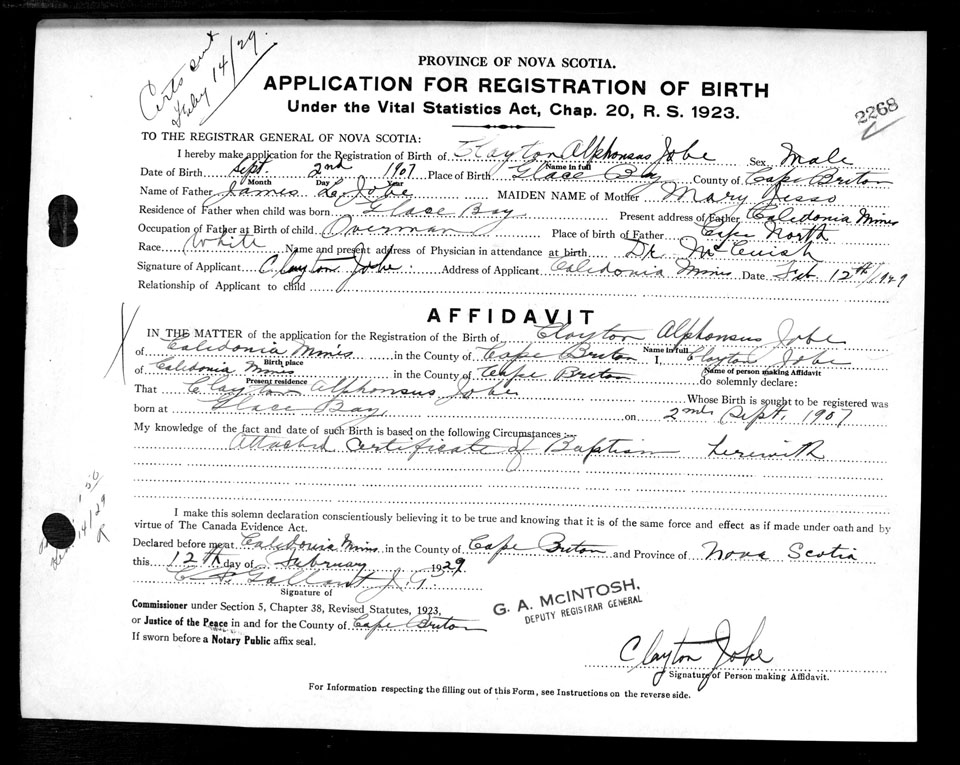 Certs sent
Feby 14/29.
PROVINCE OF NOVA SCOTIA.
APPLICATION FOR REGISTRATION OF BIRTH
Under the Vital Statistics Act, Chap. 20, R. S. 1923.
2268
TO THE REGISTRAR GENERAL OF NOVA SCOTIA:
I hereby make application for the Registration of Birth of Clayton Alphonsus Jobe Sex Male
Name in full
Date of Birth Sept. 2nd 1907 Place of Birth Glace Bay County of Cape Briton
Month Day Year
Name of Father James L. Jobe MAIDEN NAME of Mother Mary Jesso
Residence of Father when child was born Glace Bay Present address of Father Caledonia Mines
Occupation of Father at Birth of child Overman Place of birth of Father Cape North
Race White Name and present address of Physician in attendance at birth Dr. McCuish
Signature of Applicant Clayton Jobe. Address of Applicant Calidonia Mines Date Feb. 12th/1929
Relationship of Applicant to child
AFFIDAVIT
IN THE MATTER of the application for the Registration of the Birth of Clayton Alphonsus Jobe
Name in full
of Calidonia Mines in the County of Cape Briton I, Clayton Jobe
Birth place Name of person making Affidavit
of Calidonia Mines in the County of Cape Breton do solemnly declare:
Present residence
That Clayton Alphonsus Jobe Whose Birth is sought to be registered was
born at Glace Bay, on 2nd Sept. 1907
My knowledge of the fact and date of such Birth is based on the following Circumstances :—
Attached Certificate of Baptism herewith
I make this solemn declaration conscientiously believing it to be true and knowing that it is of the same force and effect as if made under oath and by
virtue of The Canada Evidence Act.
Declared before me at Calidonia Mines in the County of Cape Briton and Province of Nova Scotia
this 12th day of February 1929
Gallant
Signature of
G. A. McINTOSH,
DEPUTY REGISTRAR GENERAL
Commissioner under Section 5, Chapter 38, Revised Statutes, 1923,
or Justice of the Peace in and for the County of Cape Briton
If sworn before a Notary Public affix seal.
Clayton Jobe
Signature of Person making Affidavit.
For Information respecting the filling out of this Form, see Instructions on the reverse side.
1 50
14/29
R